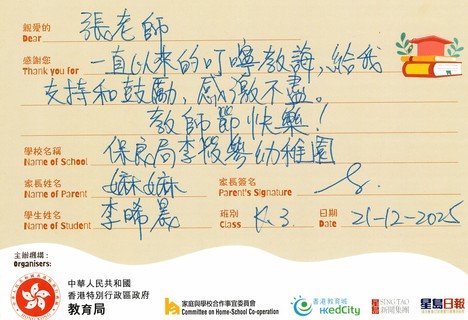 親愛的 張老師
Dear
感謝您 一直以來的叮嚀教誨,給我
Thank you for
支持和鼓勵,感激不盡。
教師節快樂!
學校名稱 保良局李筱琴幼稚園
Name of School
家長姓名 嫲嫲 家長簽名
Name of Parent Parent's Signature
學生姓名 李晞晨 班別 K.3 日期 21-12-2025
Name of Student Class Date
主辦機構:
Organisers:
中華人民共和國
香港特別行政區政府
教育局
家庭與學校合作事宜委員會
Committee on Home-School Co-operation
香港教育城
HKedCity
星島 SING TAO
新聞集團
星島日報